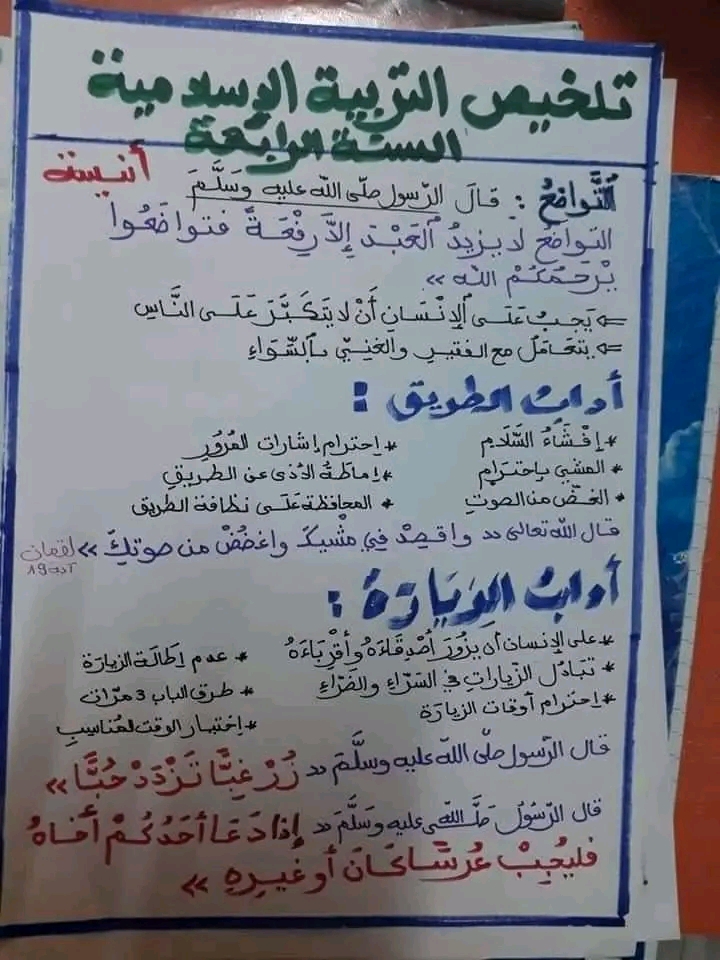 تلخيص التربية الإسلامية
السنة الرابعة
أنيسة
التَّواضعُ : قالَ الرّسول صلّى الله عليه وَسَلَّمَ
التواضعُ لا يزيدُ العَبْدَ إلاَّ رِفْعَةً فتواضَعُوا
يَرْحَمُكُمْ الله »
⇐ يَجِبُ عَلَى الإِنْسَانِ أَنْ لا يَتَكَبَّرَ عَلَى النَّاسِ
⇐ يتعَامَل مع الفقير والغنِيّ بالسَّوَاءِ
أداب الطريق :
* إفْشَاءُ السَّلام * احترام إشارات المُرُورِ
* المشي باحترام * إماطةُ الأذى عن الطريقِ
* الغضّ من الصوتِ * المحافظة عَلَى نظافة الطريق
قال الله تعالى « واقصِدْ فِي مَشْيِكَ واغضُضْ من صوتِكَ » لقمان
آية 19
أدابُ الزِيَارَة :
* على الإنسان أن يزُورَ أصدِقَاءَهُ وأقْرِبَاءَهُ * عدم إطالة الزيارة
* تبَادُل الزّيارات في السَّرَّاءِ والضَرَّاءِ * طرق الباب 3 مرّات
* احترام أوقات الزيارة * اختيار الوقت المُناسِبِ
قال الرّسول صلّى الله عليه وسلَّمَ « زُرْ غِبًّا تَزْدَدْ حُبًّا »
قال الرّسُولُ صَلَّى الله عليه وَسَلَّمَ « إذا دَعَا أحَدُكُمْ أخاهُ
فليُجِبْ عُرْسًا كَانَ أو غيرِهِ »